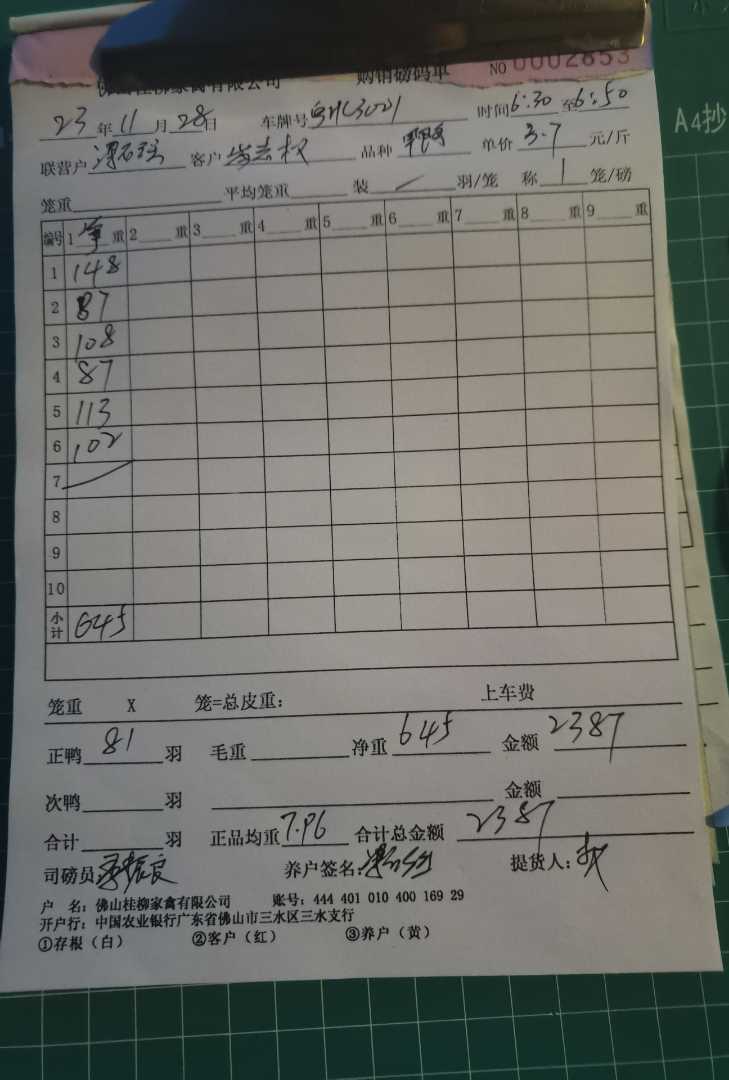 佛山桂柳家禽有限公司 购销磅码单 NO 0002853
23年11月28日 车牌号 时间6:30至6:50
联营户 客户 品种 单价3.7元/斤
笼重 平均笼重 装 羽/笼 称1笼/磅
编号 1净重 2 重 3 重 4 重 5 重 6 重 7 重 8 重 9 重
1 148
2 87
3 108
4 87
5 113
6 102
7
8
9
10
小计 645
笼重 X 笼=总皮重: 上车费
正鸭81羽 毛重 净重645 金额2387
次鸭 羽 金额
合计 羽 正品均重7.96 合计总金额2387
司磅员 养户签名: 提货人:
户 名: 佛山桂柳家禽有限公司 账号: 444 401 010 400 169 29
开户行: 中国农业银行广东省佛山市三水区三水支行
①存根（白） ②客户（红） ③养户（黄）
A4抄